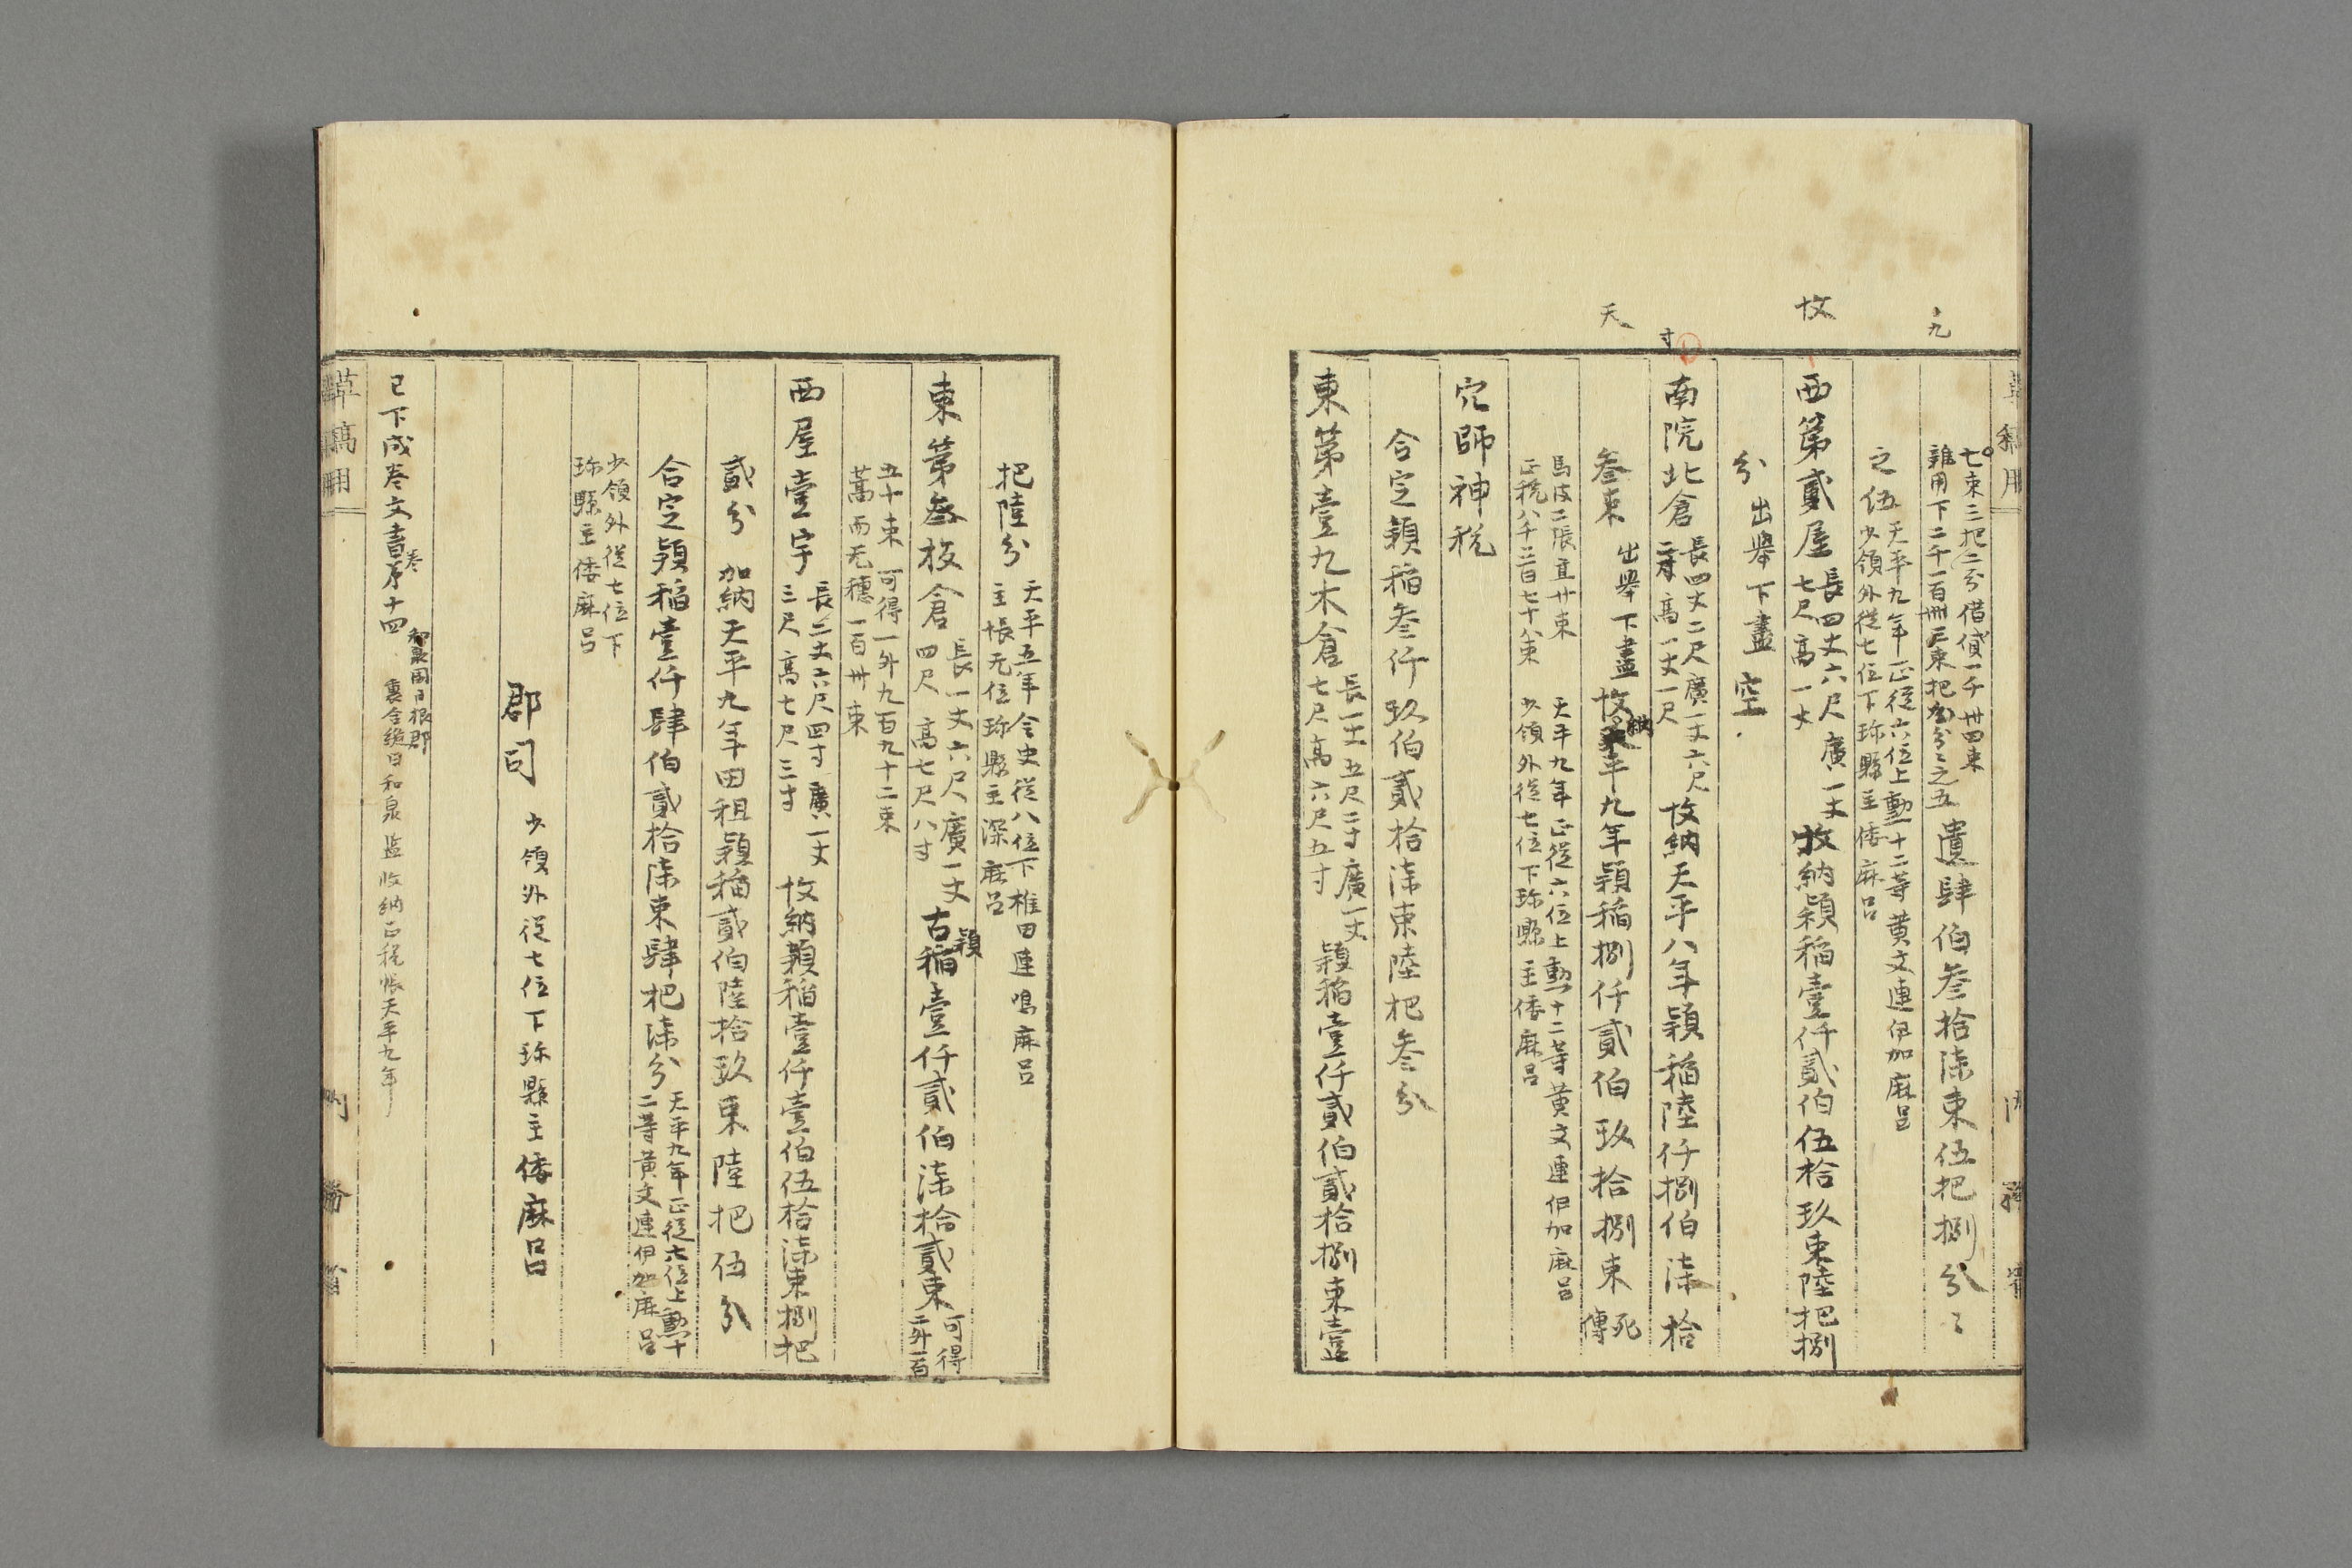 九
七束三把二分借貸一千卌四束
雑用下二千一百卌三束把分之五
遺肆伯叁拾漆束伍把捌分〻
之伍
天平九年正從六位上勳十二等黄文連伊加麻呂
少領外從七位下珎縣主倭麻呂
收
西第貳屋
長四丈六尺廣一丈
七尺高一丈
收納穎稲壹仟貳伯伍拾玖束陸把捌
分
出擧下盡空
寸
南院北倉
長四丈二尺廣一丈六尺
高一丈一尺
收納天平八年穎稲陸仟捌伯漆拾
天
叁束
出擧下盡
收納
平九年穎稲捌仟貳伯玖拾捌束
死
傳
馬皮二張直廿束
正税八千二百七十八束
天平九年正從六位上勳十二等黄文連伊加麻呂
少領外從七位下珎縣主倭麻呂
穴師神税
合定穎稲叁仟玖伯貳拾漆束陸把叁分
東第壹丸木倉
長一丈五尺二寸廣一丈
七尺高六尺五寸
穎稲壹仟貳伯貳拾捌束壹
把陸分
天平五年令史從八位下椎田連嶋麻呂
主帳无位珎縣主深麻呂
東第叁板倉
長一丈六尺廣一丈
四尺高七尺八寸
古穎稲壹仟貳伯漆拾貳束
可得
二千一百
五十束可得一千九百九十二束
蒿而无穗一百卅束
西屋壹宇
長二丈六尺四寸廣一丈
三尺高七尺三寸
收納穎稲壹仟壹伯伍拾漆束捌把
貳分
加納天平九年田租穎稲貳伯陸拾玖束陸把伍分
合定穎稲壹仟肆伯貳拾漆束肆把漆分
天平九年正從六位上勳十
二等黄文連伊加麻呂
少領外從七位下
珎縣主倭麻呂
郡司
少領外從七位下珎縣主倭麻呂
已下成巻文書第十四
巻
和泉国日根郡
裏全繼目和泉監收納正税帳天平九年
草稿用